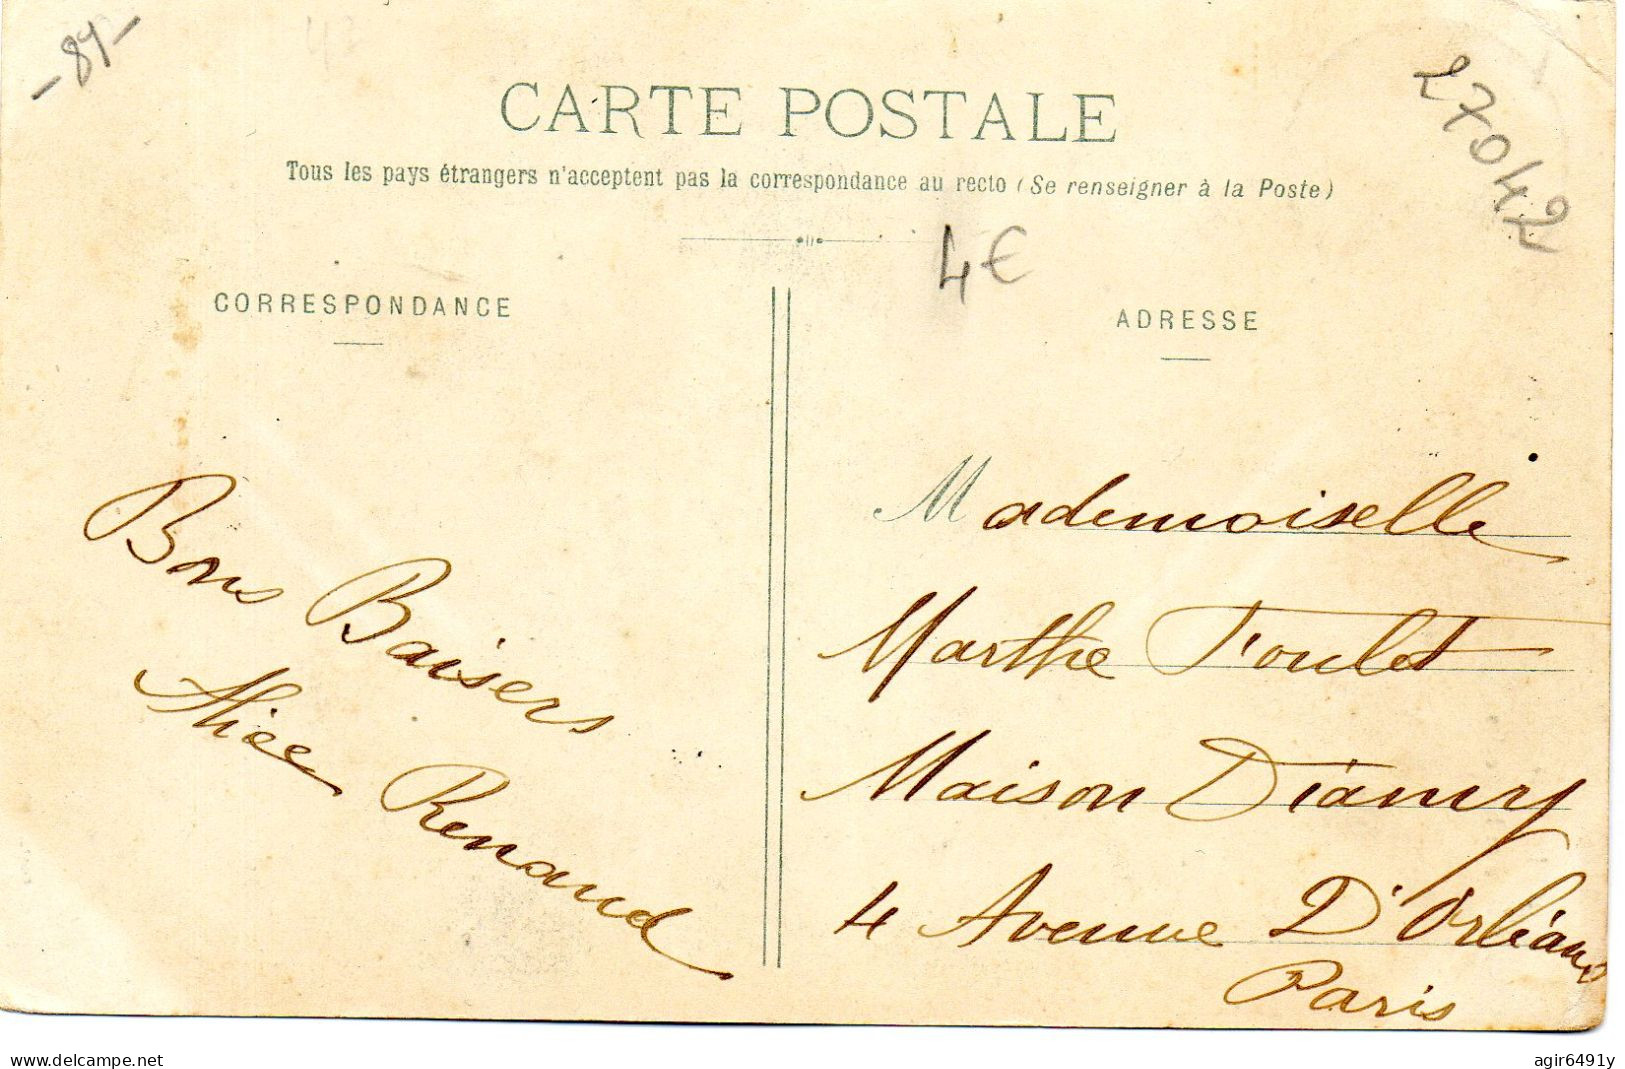 -89-
27042
CARTE POSTALE
Tous les pays étrangers n'acceptent pas la correspondance au recto (Se renseigner à la Poste)
4€
CORRESPONDANCE
Bons Baisers
Alice Renaud
ADRESSE
Mademoiselle
Marthe Toulet
Maison Diamy
4 Avenue D'Orléans
Paris
www.delcampe.net
agir6491y